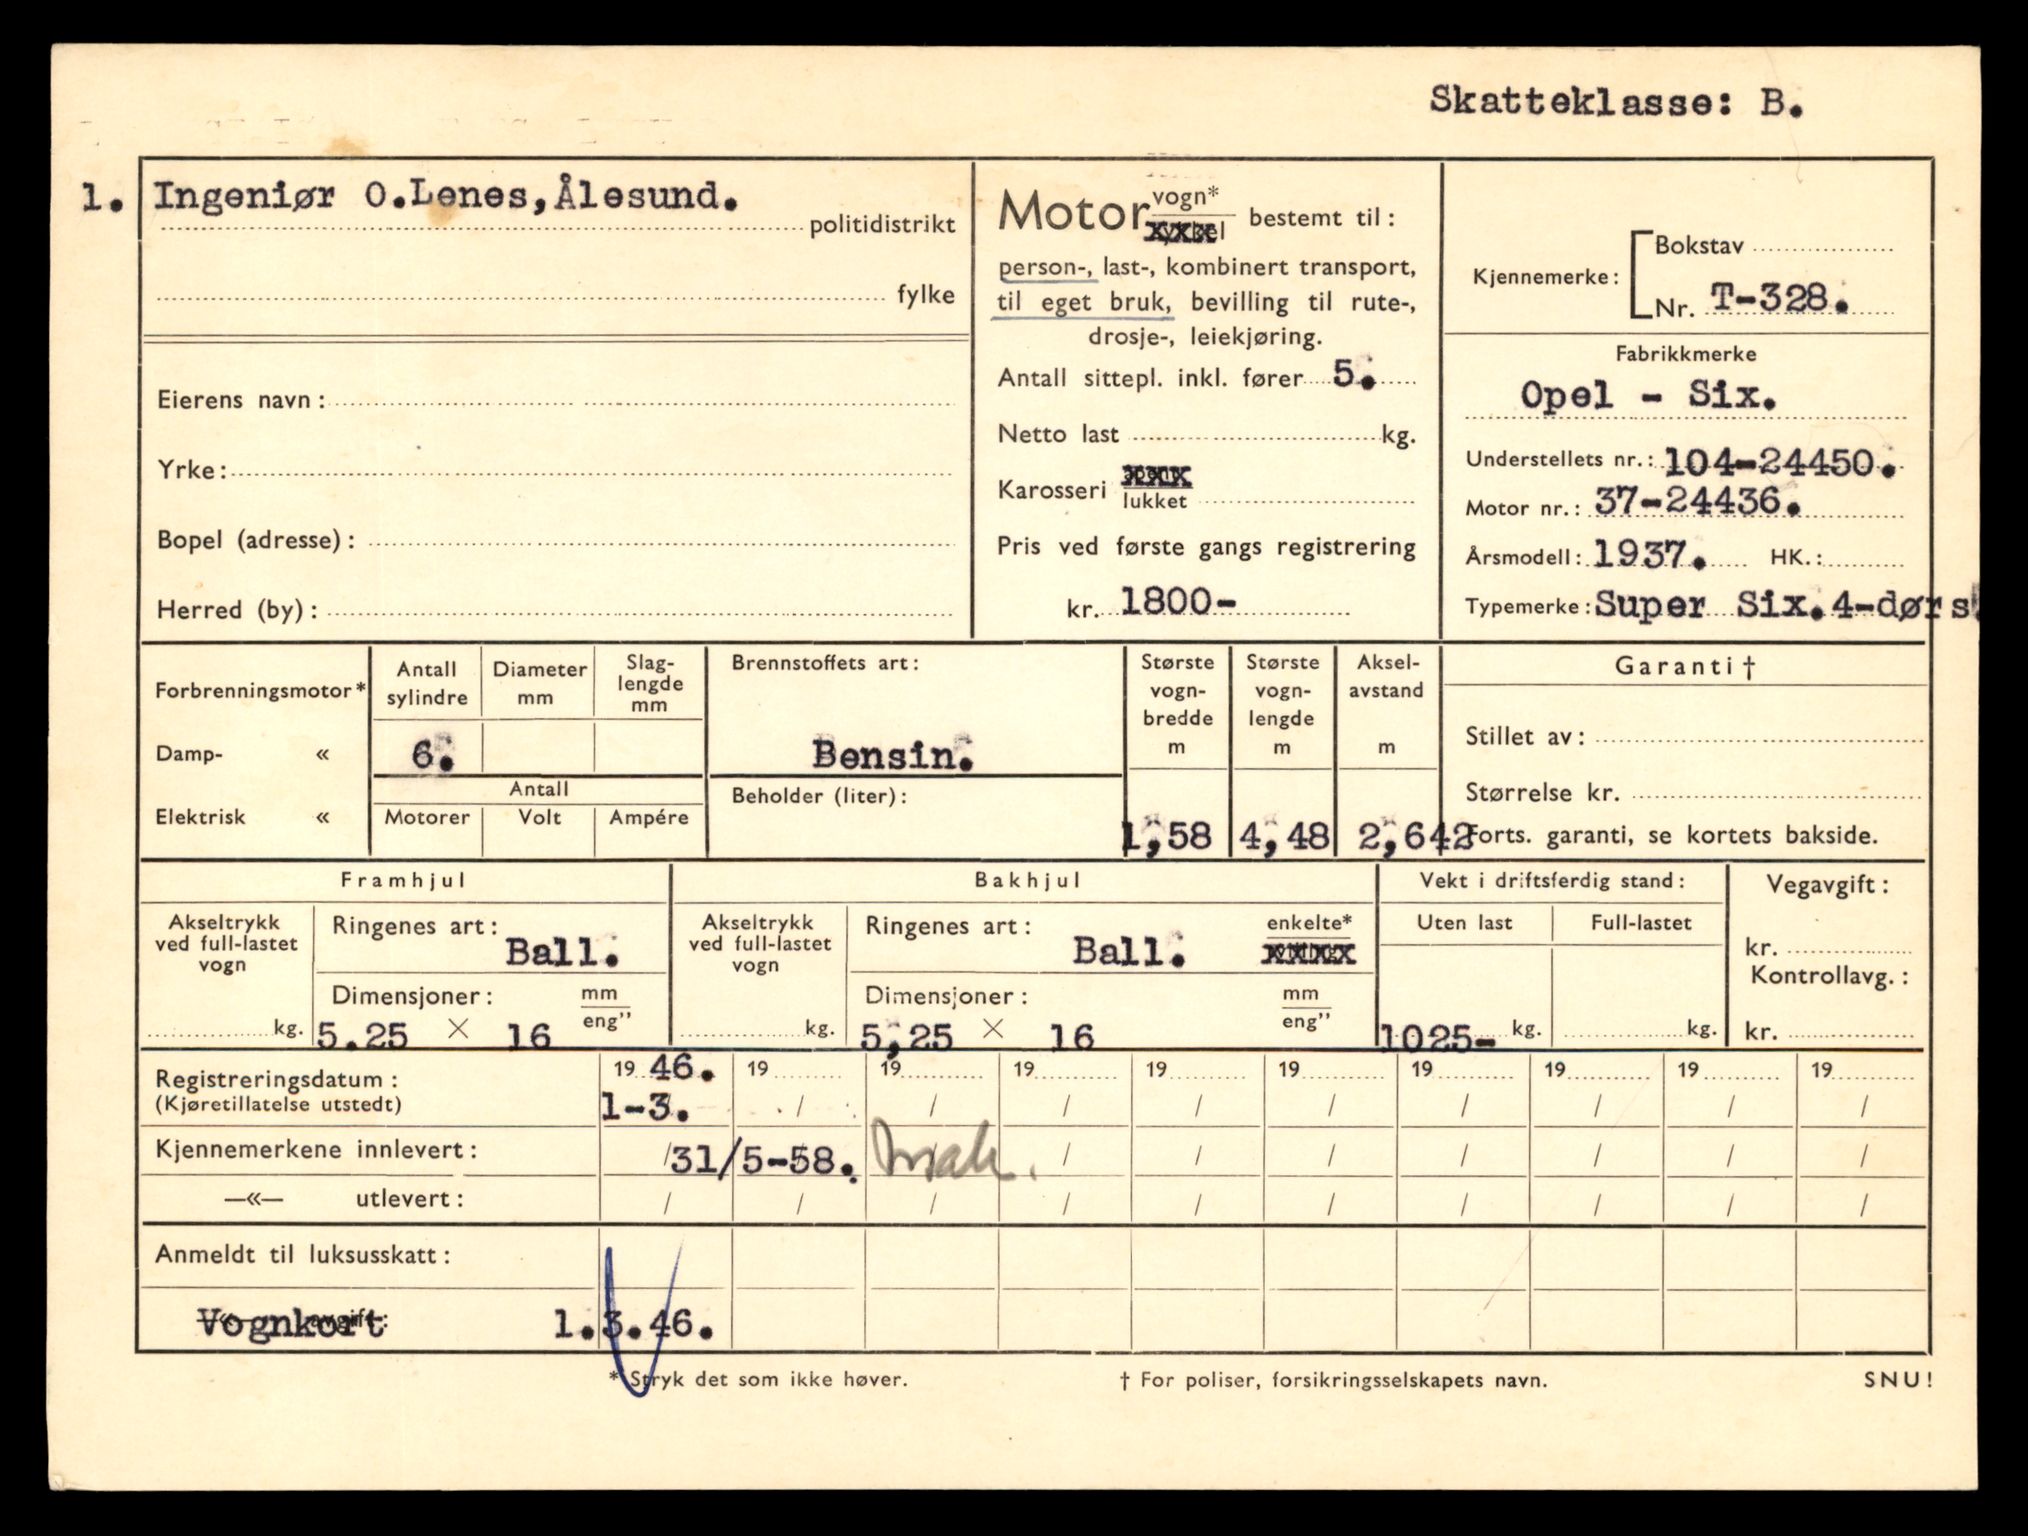 Skatteklasse: B.
1. Ingeniør O.Lenes, Ålesund.
politidistrikt
fylke
Eierens navn:
Yrke:
Bopel (adresse):
Herred (by):
Motor vogn*
bestemt til:
person-, last-, kombinert transport,
til eget bruk, bevilling til rute-,
drosje-, leiekjøring.
Antall sittepl. inkl. fører 5.
Netto last kg.
Karosseri xxxx
lukket
Pris ved første gangs registrering
kr. 1800-
Kjennemerke: Bokstav
Nr. T-328.
Fabrikkmerke
Opel - Six.
Understellets nr.: 104-24450.
Motor nr.: 37-24436.
Årsmodell: 1937. HK.:
Typemerke: Super Six.4-dørs.
Forbrenningsmotor*
Damp- «
Elektrisk «
Antall sylindre
6.
Diameter mm
Slag-
lengde
mm
Antall
Motorer Volt Ampére
Brennstoffets art:
Bensin.
Beholder (liter):
Største
vogn-
bredde
m
1,58
Største
vogn-
lengde
m
4,48
Aksel-
avstand
m
2,642
Garanti †
Stillet av:
Størrelse kr.
Forts. garanti, se kortets bakside.
Framhjul
Akseltrykk
ved full-lastet
vogn
kg.
Ringenes art:
Ball.
Dimensjoner: mm
eng”
5.25 × 16
Bakhjul
Akseltrykk
ved full-lastet
vogn
kg.
Ringenes art: enkelte*
Ball. xxxx
Dimensjoner: mm
eng”
5,25 × 16
Vekt i driftsferdig stand:
Uten last Full-lastet
1025- kg. kg.
Vegavgift:
kr.
Kontrollavg.:
kr.
Registreringsdatum: 19 46. 19 19 19 19 19 19 19 19 19
(Kjøretillatelse utstedt) 1-3. / / / / / / / / /
Kjennemerkene innlevert: / 31/5-58. / / / / / / /
—«— utlevert: / / / / / / / / / /
Anmeldt til luksusskatt:
Vognkort 1.3.46.
* Stryk det som ikke høver.
† For poliser, forsikringsselskapets navn.
SNU!